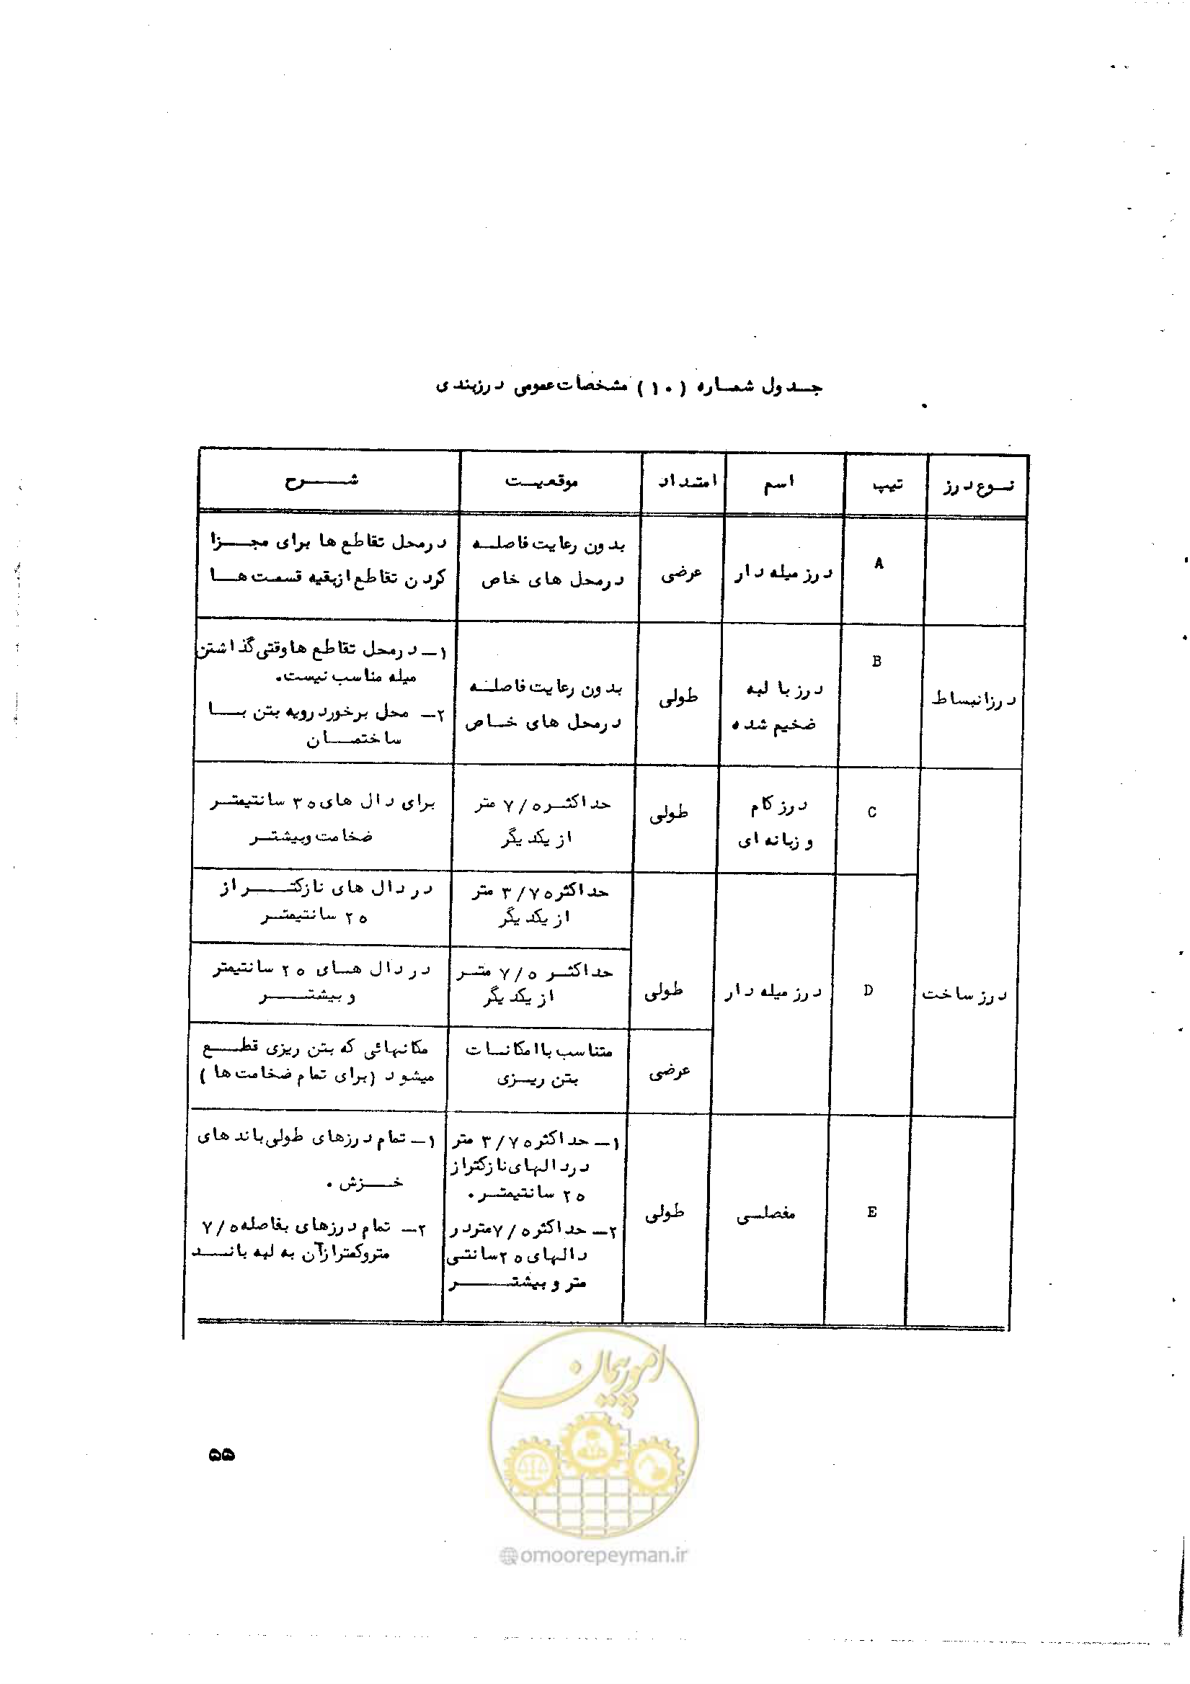 جدول شماره (۱۰) مشخصات عمومی درزبندی
نوع درز
تیپ
اسم
امتداد
موقعیت
شرح
درز انبساط
A
درز میله دار
عرضی
بدون رعایت فاصله
درمحل های خاص
درمحل تقاطع ها برای مجزا
کردن تقاطع ازبقیه قسمت ها
B
درز با لبه
ضخیم شده
طولی
بدون رعایت فاصله
درمحل های خاص
۱- درمحل تقاطع ها وقتی گذاشتن
میله مناسب نیست.
۲- محل برخورد رویه بتن با
ساختمان
درز ساخت
C
درز کام
و زبانه ای
طولی
حداکثر ۷/۵ متر
از یکدیگر
برای دال های ۲۰ سانتیمتر
ضخامت وبیشتر
D
درز میله دار
طولی
حداکثر ۳/۷۵ متر
از یکدیگر
در دال های نازکتر از
۲۵ سانتیمتر
حداکثر ۷/۵ متر
از یکدیگر
در دال های ۲۵ سانتیمتر
و بیشتر
عرضی
متناسب با امکانات
بتن ریزی
مکانهائی که بتن ریزی قطع
میشود (برای تمام ضخامت ها)
E
مفصلی
طولی
۱- حداکثر ۳/۷۵ متر
دردالهای نازکتراز
۲۵ سانتیمتر.
۲- حداکثر ۷/۵ متردر
دالهای ۲۵ سانتی
متر و بیشتر
۱- تمام درزهای طولی باند های
خزش.
۲- تمام درزهای بفاصله ۷/۵
متروکمترازآن به لبه باند
۵۵
امور پیمان
@omoorepeyman.ir